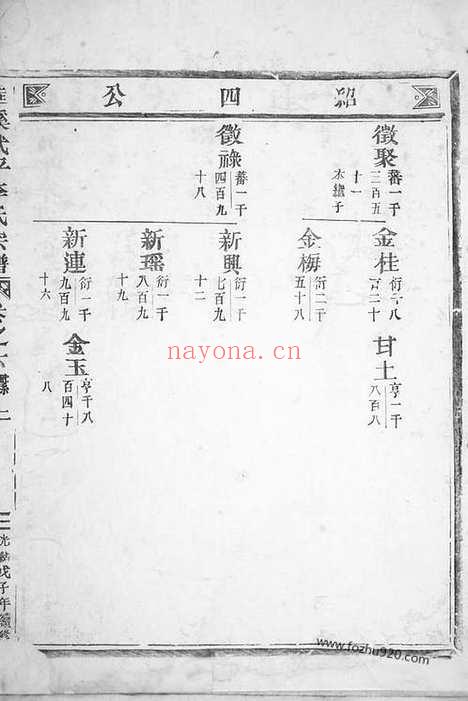 紹四公
徵聚
蕃一千
三百五
十一
木繼子
徵祿
蕃一千
四百九
十八
金桂
金梅
衍二千
五十八
新興
衍一千
七百九
十二
新瑶
衍一千
八百九
十九
新連
衍一千
九百九
十六
甘土
亨一千
八百八
金玉
亨千八
百四十
八
氏宗譜
光緒戊子年續修
nayona.cn
www.fozhu920.com